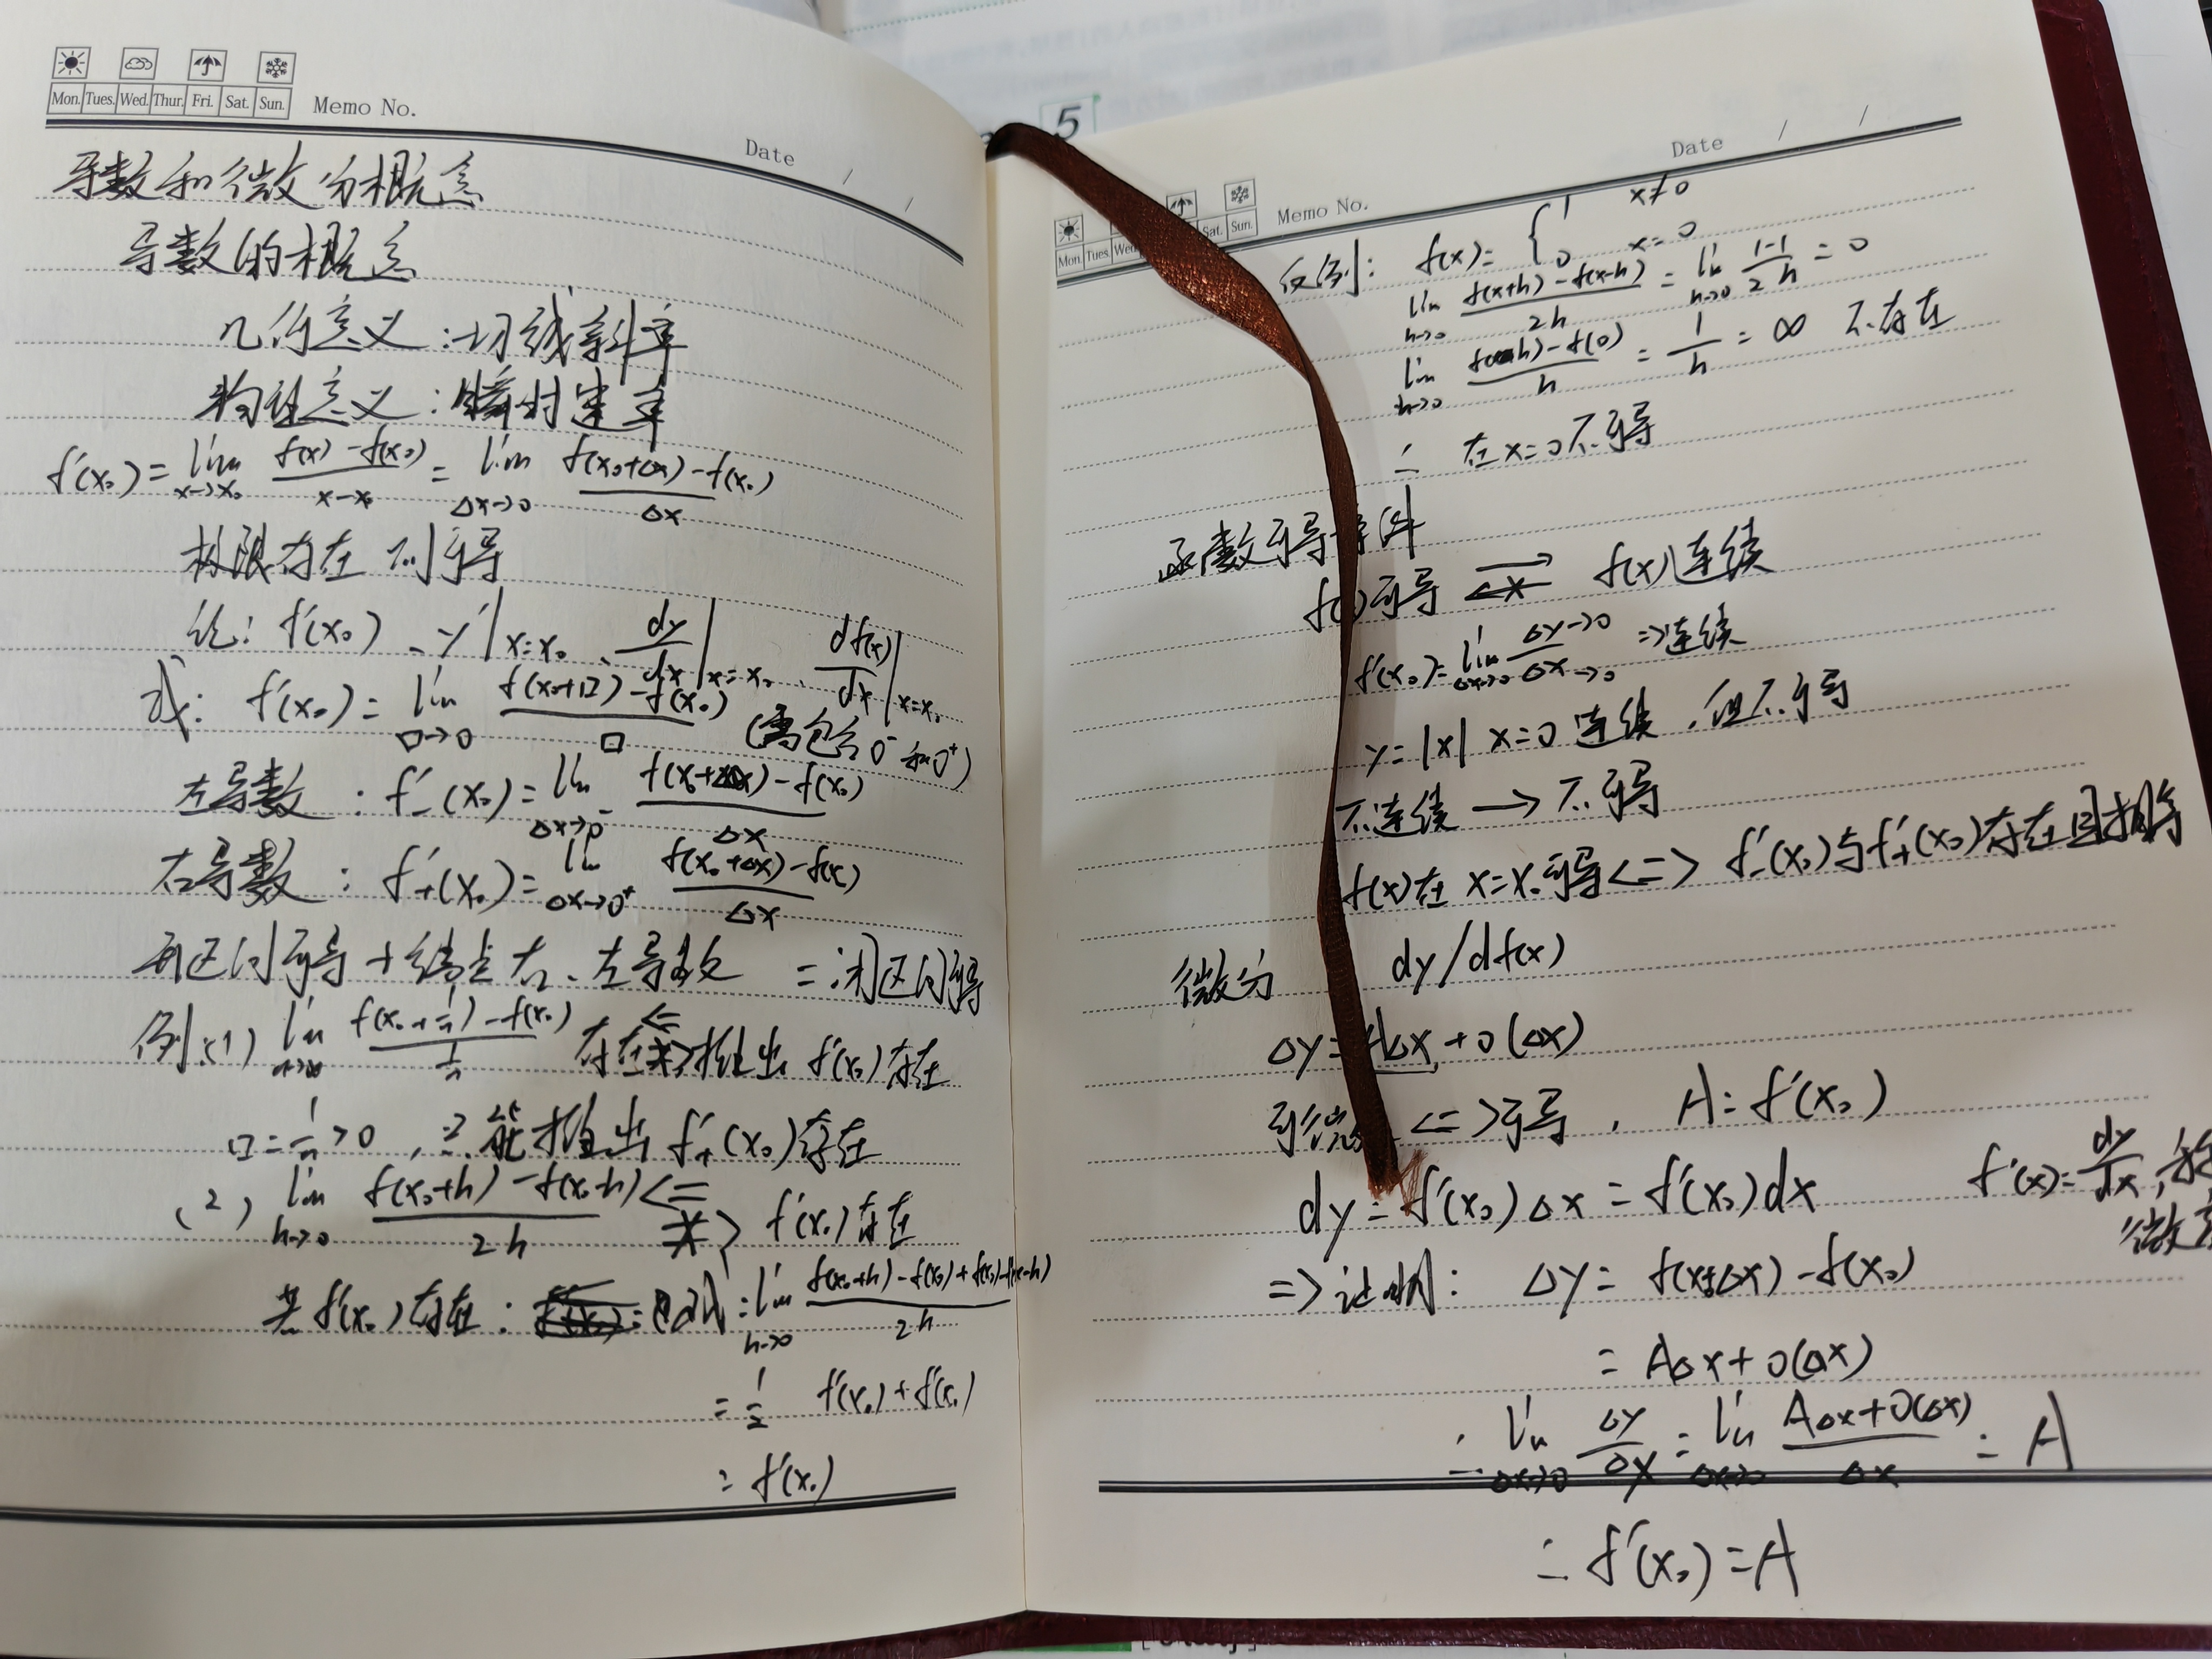 Mon. Tues. Wed. Thur. Fri. Sat. Sun. Memo No.
Date / /
导数和微分概念
导数的概念
几何意义:切线斜率
物理意义:瞬时速率
f'(x₀)=lim(x→x₀) (f(x)-f(x₀))/(x-x₀) = lim(Δx→0) (f(x₀+Δx)-f(x₀))/Δx
极限存在 则可导
记: f'(x₀)、y'|x=x₀、dy/dx|x=x₀、df(x)/dx|x=x₀
或: f'(x₀)= lim(□→0) (f(x₀+□)-f(x₀))/□ (需包含0⁻和0⁺)
左导数: f'₋(x₀)=lim(Δx→0⁻) (f(x₀+Δx)-f(x₀))/Δx
右导数: f'₊(x₀)=lim(Δx→0⁺) (f(x₀+Δx)-f(x₀))/Δx
开区间可导+端点右、左导数 =闭区间可导
例:(1) lim(n→∞) (f(x₀+1/n)-f(x₀))/(1/n) 存在 推出 f'(x₀)存在
□=1/n>0, ∴能推出f'₊(x₀)存在
(2) lim(h→0) (f(x₀+h)-f(x₀-h))/2h f'(x₀)存在
若f'(x₀)存在: 则 =lim(h→0) (f(x₀+h)-f(x₀)+f(x₀)-f(x₀-h))/2h
=1/2 f'(x₀)+f'(x₀)
=f'(x₀)
5
Date / /
Mon. Tues. Sat. Sun. Memo No.
反例: f(x)={1 x≠0
0 x=0
lim(h→0) (f(x+h)-f(x-h))/2h = lim(h→0) (1-1)/2h = 0
lim(h→0) -f(0)/h = 1/h = ∞ 不存在
∴ 在x=0不可导
函数可导条件
可导 ⇄ f(x)连续
f'(x₀)=lim(Δx→0) Δy→0/Δx→0 ⇒连续
y=|x| x=0连续,但不可导
不连续 → 不可导
f(x)在x=x₀可导<=> f'₋(x₀)与f'₊(x₀)存在且相等
微分 dy/df(x)
Δy=AΔx+o(Δx)
可微 <=>可导, A=f'(x₀)
dy=f'(x₀)Δx=f'(x₀)dx f'(x)=dy/dx,
微
=>证明: Δy=f(x₀+Δx)-f(x₀)
=AΔx+o(Δx)
∴ lim(Δx→0) Δy/Δx = lim(Δx→0) (AΔx+o(Δx))/Δx = A
∴ f'(x₀)=A